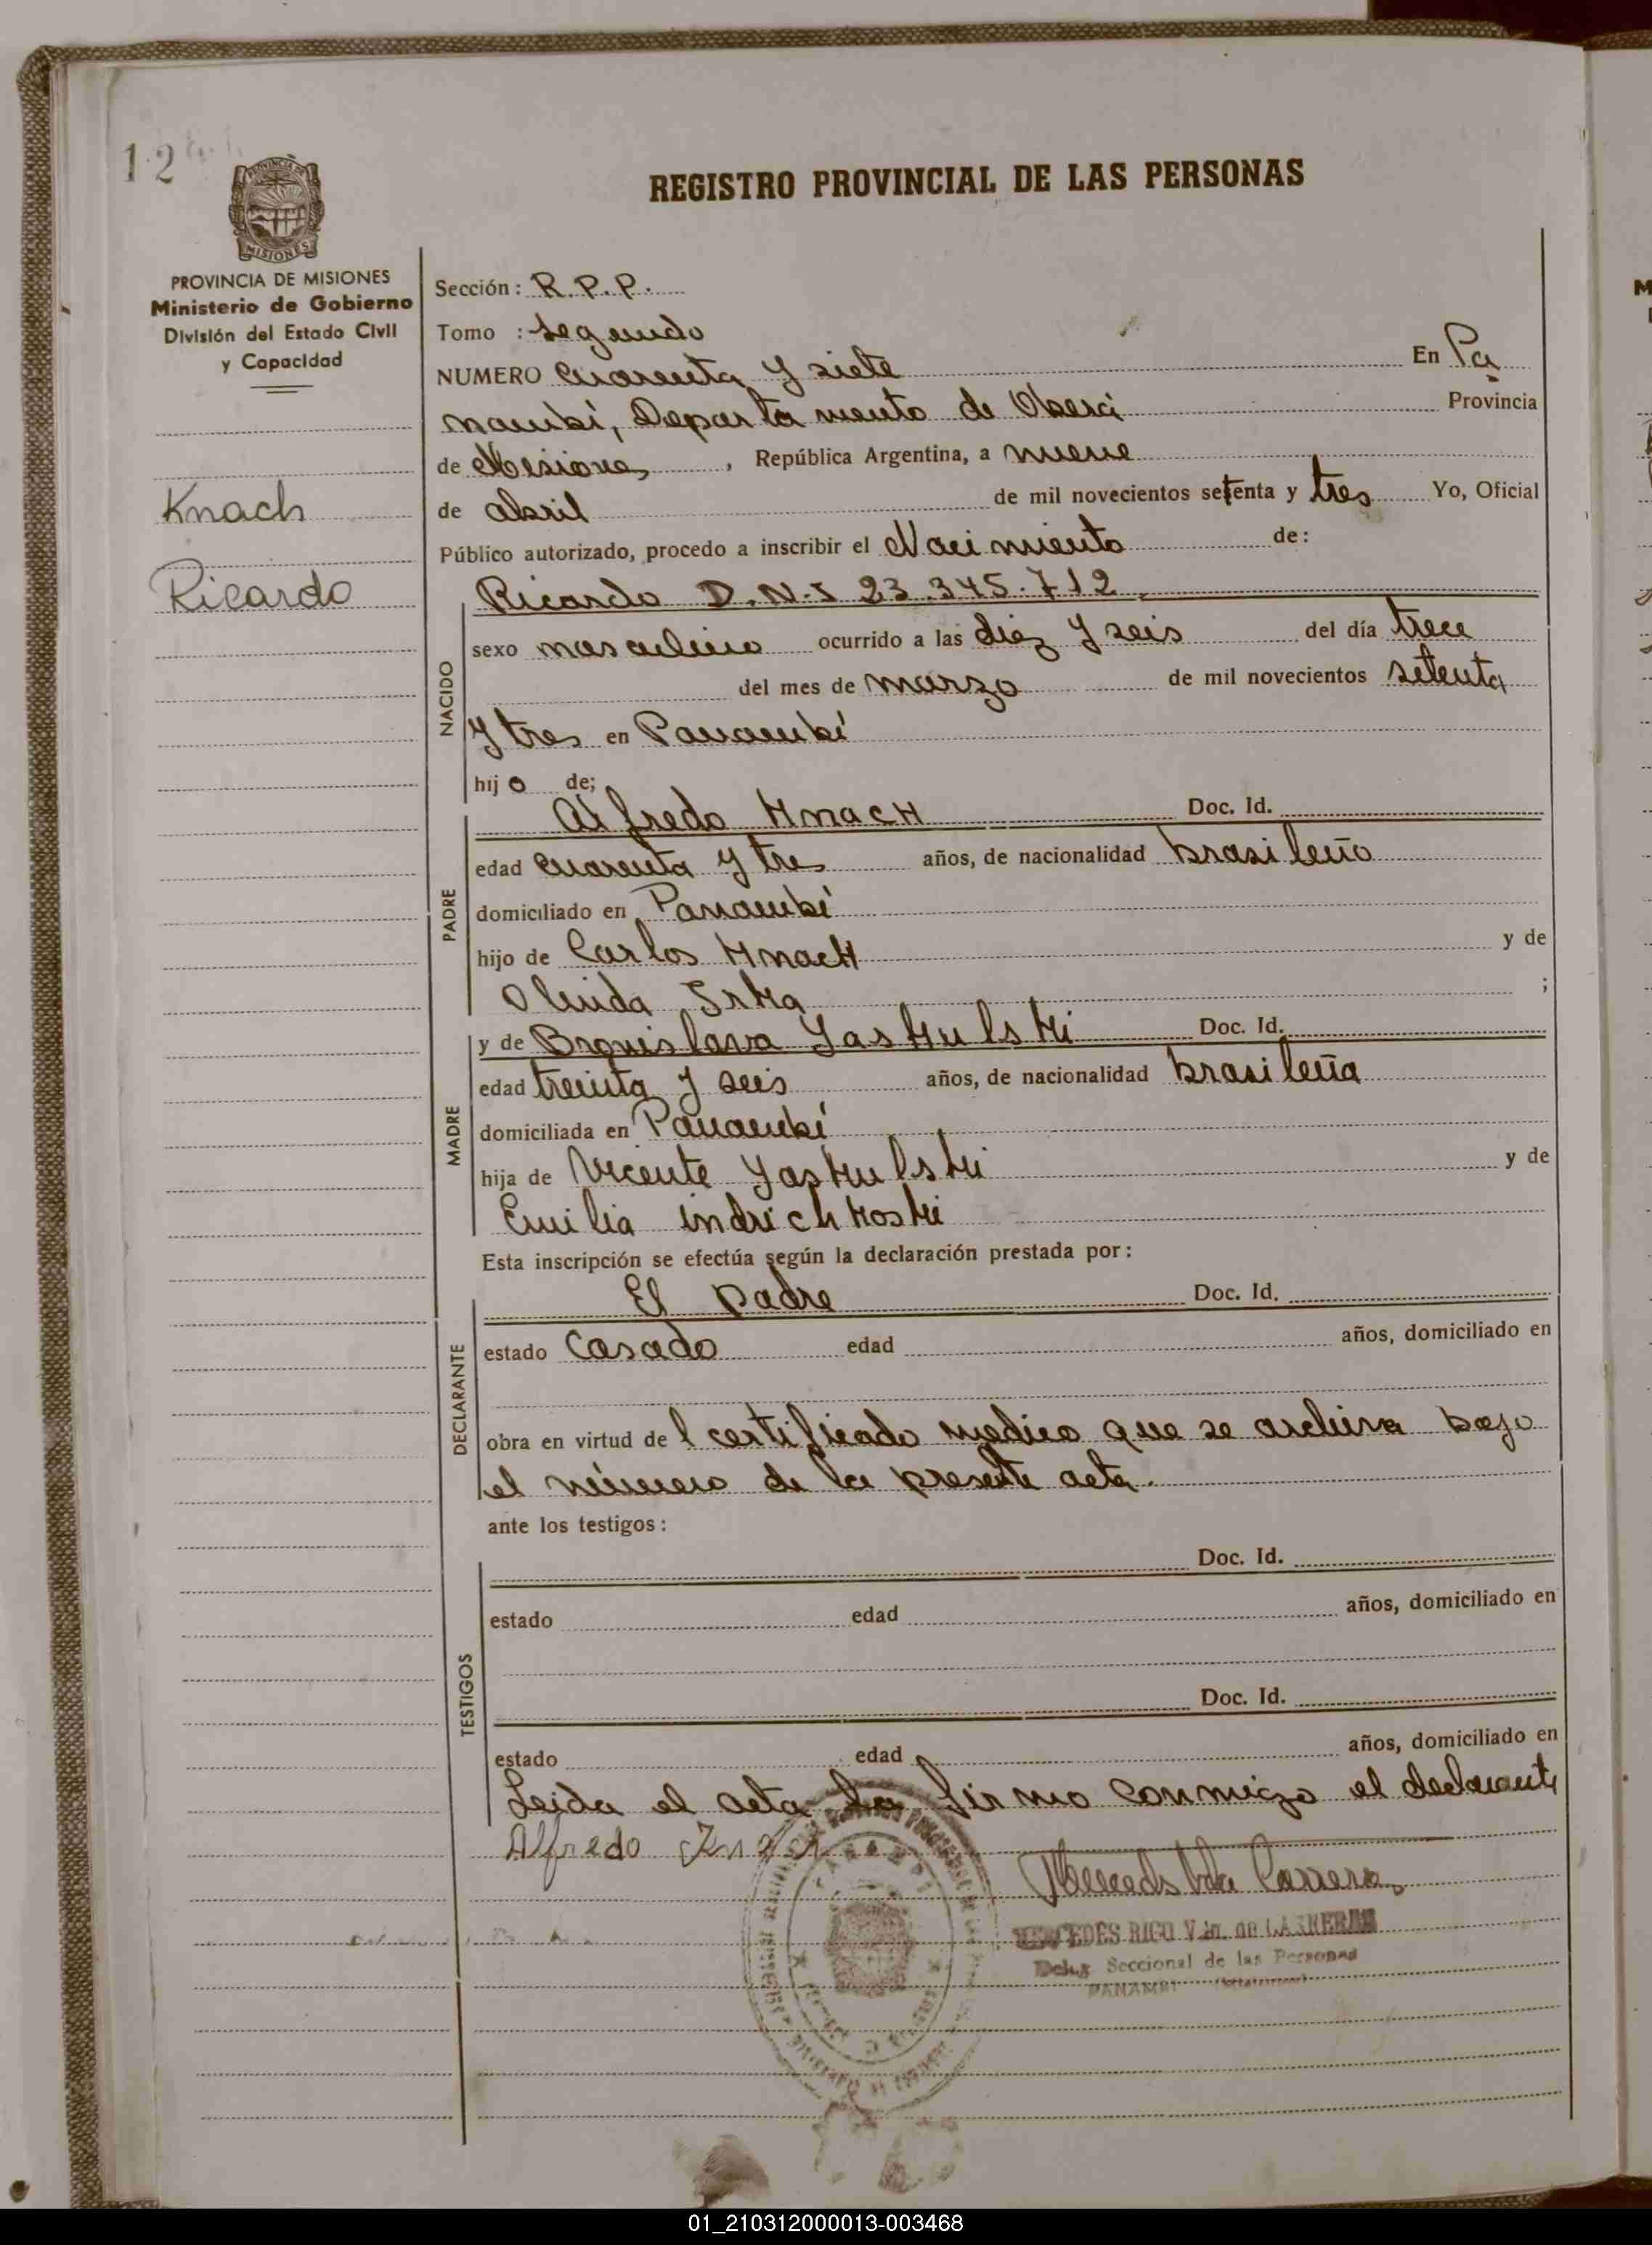 12
PROVINCIA
MISIONES
REGISTRO PROVINCIAL DE LAS PERSONAS
PROVINCIA DE MISIONES
Ministerio de Gobierno
División del Estado Civil
y Capacidad
Knach
Ricardo
Sección: R.P.P.
Tomo : Segundo
NUMERO Cuarenta y siete En Pa
nambí, Departamento de Oberá Provincia
de Misiones, República Argentina, a nueve
de abril de mil novecientos setenta y tres Yo, Oficial
Público autorizado, procedo a inscribir el Nacimiento de:
NACIDO
Ricardo D.N.I 23.345.712
sexo masculino ocurrido a las diez y seis del día trece
del mes de marzo de mil novecientos setenta
y tres en Panambí
hijo de;
PADRE
Alfredo Knach Doc. Id.
edad cuarenta y tres años, de nacionalidad brasileño
domiciliado en Panambí
hijo de Carlos Knach y de
Olinda ;
MADRE
y de Bronislava Yaskulski Doc. Id.
edad treinta y seis años, de nacionalidad brasileña
domiciliada en Panambí
hija de Vicente Yaskulski y de
Emilia Indrichkoski
Esta inscripción se efectúa según la declaración prestada por:
DECLARANTE
El padre Doc. Id.
estado Casado edad años, domiciliado en
obra en virtud del certificado medico que se archiva bajo
el número de la presente acta.
ante los testigos:
TESTIGOS
Doc. Id.
estado edad años, domiciliado en
Doc. Id.
estado edad años, domiciliado en
Leida el acta la firmo conmigo el declarante
Alfredo Knach
MERCEDES RICO Vda. de CARRERAS
Deleg. Seccional de las Personas
PANAMBI (Misiones)
01_210312000013-003468